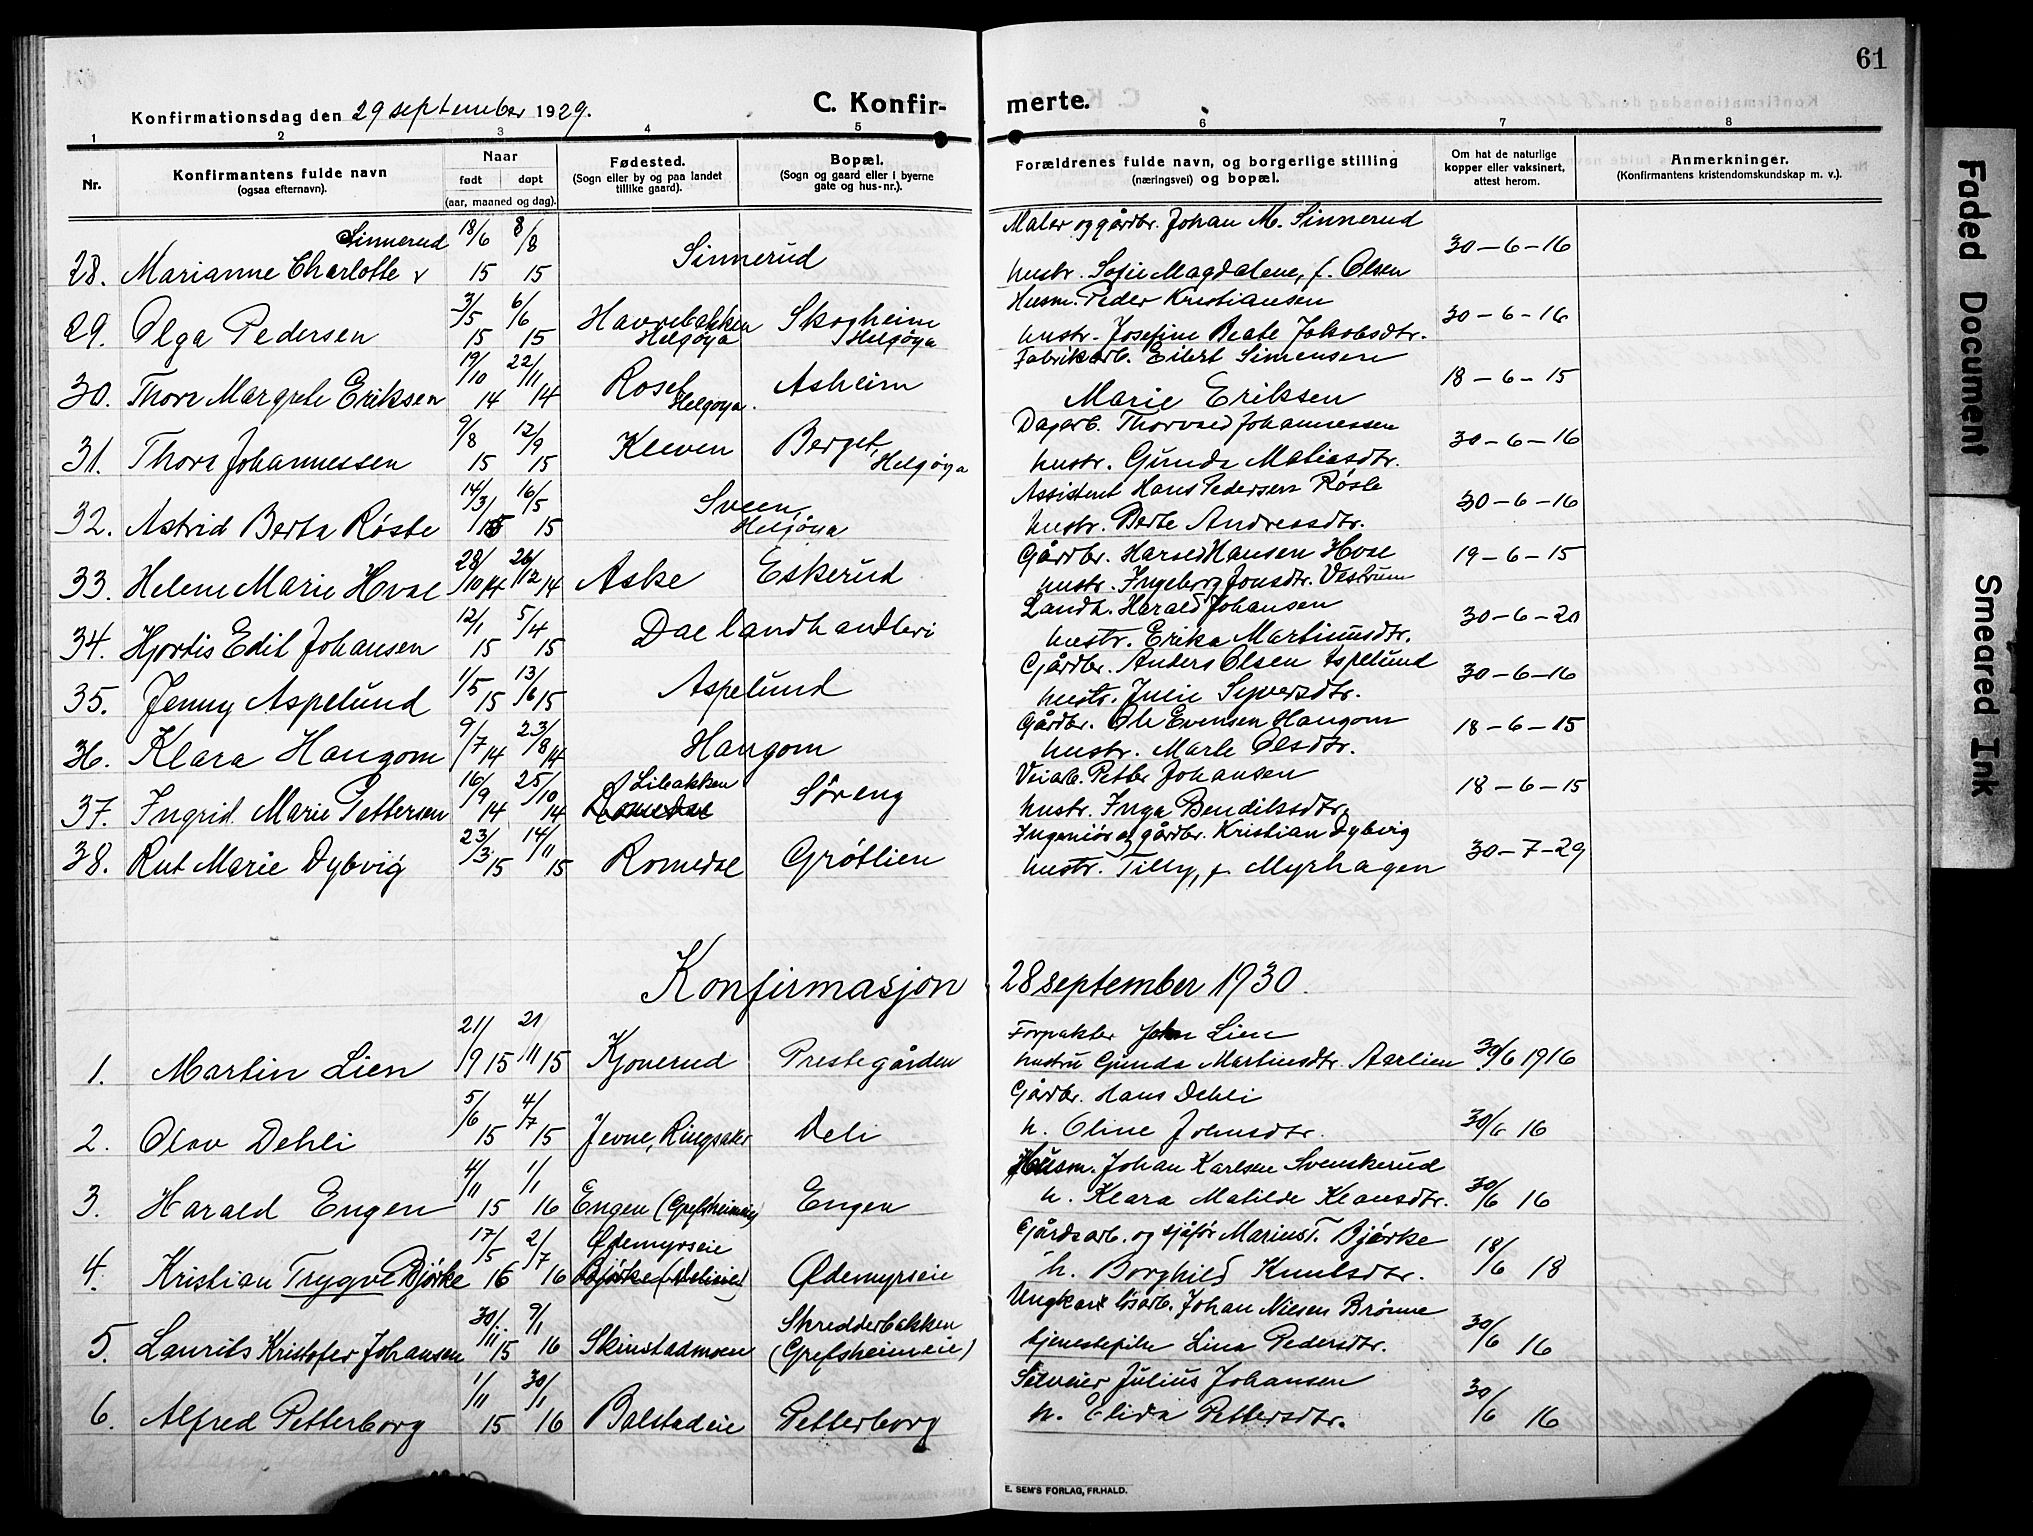 61
Konfirmationsdag den 29 september 1929.
C. Konfir-
merte.
1 2 3 4 5 6 7 8
Nr.
Konfirmantens fulde navn
(ogsaa efternavn).
Naar
født døpt
(aar, maaned og dag).
Fødested.
(Sogn eller by og paa landet
tillike gaard).
Bopæl.
(Sogn og gaard eller i byerne
gate og hus-nr.).
Forældrenes fulde navn, og borgerlige stilling
(næringsvei) og bopæl.
Om hat de naturlige
kopper eller vaksinert,
attest herom.
Anmerkninger.
(Konfirmantens kristendomskundskap m. v.).
Sinnerud 18/6 8/8 Maler og gårdbr. Johan M. Sinnerud
28. Marianne Charlotte 15 15 Sinnerud hustr. Sofie Magdalene, f. Olsen 30-6-16
3/5 6/6 Husm. Peder Kristiansen
29. Olga Pedersen 15 15 Havrebakken Helgøya Skogheim Helgøya hustr. Josefine Beate Jakobsdtr. 30-6-16
19/10 22/11 Fabrikarb. Eilert Simensen
30. Thora Margrete Eriksen 14 14 Roset Helgøya. Åsheim Marie Eriksen 18-6-15
9/8 12/9 Dagarb. Thorvald Johannessen
31. Thora Johannessen 15 15 Kleven Berget, Helgøya hustr. Gunda Matiasdtr. 30-6-16
14/3 16/5 Assistent Hans Pedersen Røste
32. Astrid Berta Røste 15 15 Sveen, Helgøya hustr. Berte Andreasdtr. 30-6-16
28/10 26/12 Gårdbr. Harald Hansen Hval
33. Helene Marie Hval 14 14 Aske Eskerud hustr. Ingeborg Jonsdtr. Vestrum 19-6-15
12/1 5/4 Landh. Harald Johansen
34. Hjordis Edit Johansen 15 15 Dal landhandleri hustr. Erika Martinusdtr. 30-6-20
1/5 13/6 Gårdbr. Anders Olsen Aspelund
35. Jenny Aspelund 15 15 Aspelund hustr. Julie Syversdtr. 30-6-16
9/7 23/8 Gårdbr. Ole Evensen Haugom
36. Klara Haugom 14 14 Haugom hustr. Marte Olsdtr. 18-6-15
16/9 25/10 Libakken Veiarb. Petter Johansen
37. Ingrid Marie Pettersen 14 14 Romedal Søreng hustr. Inga Bendiksdtr. 18-6-15
23/3 14/11 Ingeniør og gårdbr. Kristian Dybvig
38. Rut Marie Dybvig 15 15 Romedal Grøtlien hustr. Tilly, f. Myrhagen 30-7-29
Konfirmasjon 28 september 1930.
21/9 21/11 Forpakter John Lien
1. Martin Lien 15 15 Kjoverud Prestegården hustru Gunda Martinsdtr. Aarlien 30/6 1916
5/6 4/7 Gårdbr. Hans Dehli
2. Olav Dehli 15 15 Jevne, Ringsaker Deli h. Oline Johnsdtr. 30/6 16
4/11 1/1 Husm. Johan Karlsen Svenskerud
3. Harald Engen 15 16 Engen (Grefsheimeie) Engen h. Klara Matilde Klausdtr. 30/6 16
17/5 2/7 Ødemyrseie Gårdsarb. og sjåfør Marius T. Bjørke
4. Kristian Trygve Bjørke 16 16 Ødemyrseie h. Borghild Knutsdtr. 18/6 18
30/11 9/1 Skredderbakken Ungkar løsarb. Johan Nilsen Brønne
5. Laurits Kristofer Johansen 15 16 Skinstadmoen (Grefsheimeie) tjenestepike Lina Pedersdtr. 30/6 16
1/11 30/1 Selveier Julius Johansen
6. Alfred Petterborg 15 16 Balstadeie Petterborg h. Elida Pettersdtr. 30/6 16
E. SEM'S FORLAG, FR.HALD.
Faded Document
Smeared Ink